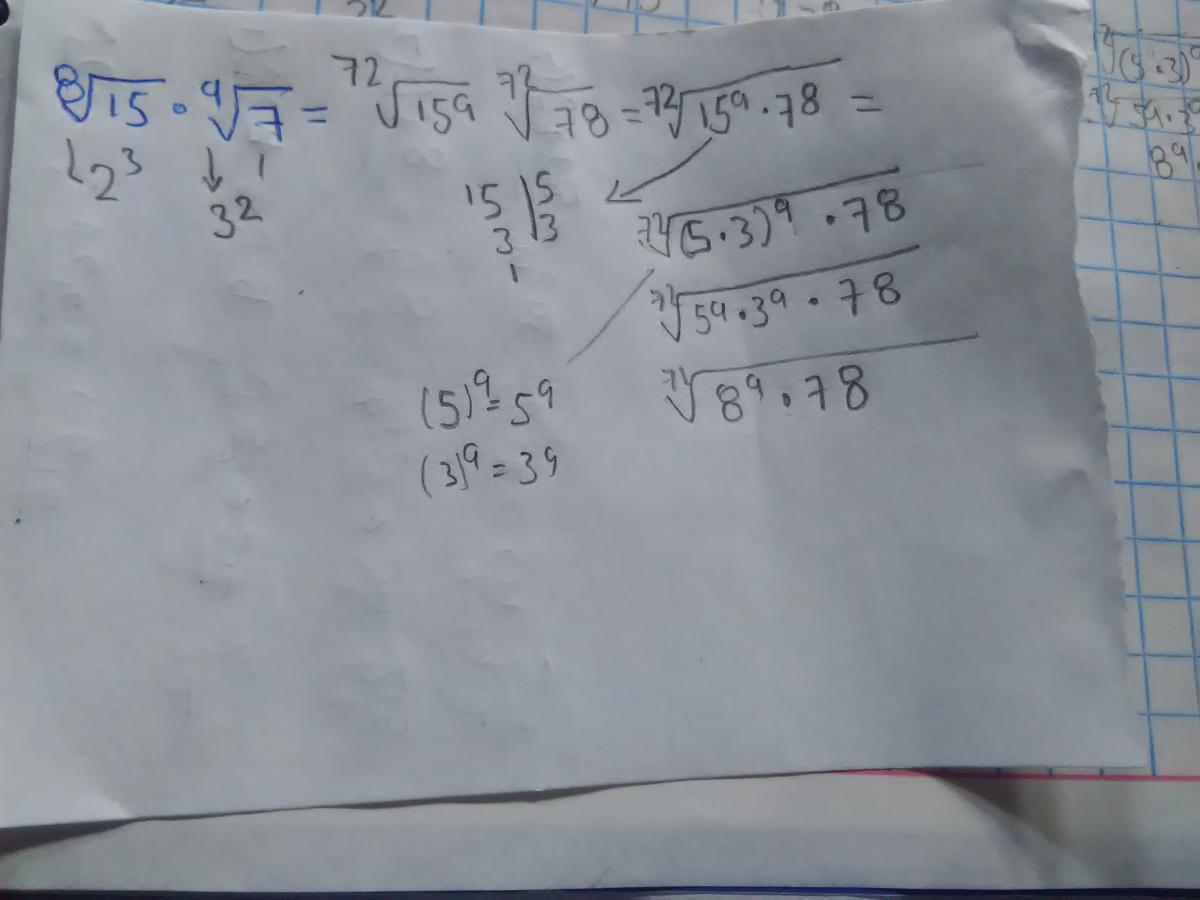 ⁸√15 · ⁹√7 = ⁷²√15⁹ ⁷²√7⁸ = ⁷²√15⁹ · 7⁸ =
2³ 3² 1
15 | 5
3 | 3
1
⁷²√(5·3)⁹ · 7⁸
⁷²√5⁹ · 3⁹ · 7⁸
⁷²√8⁹ · 7⁸
(5)⁹ = 5⁹
(3)⁹ = 3⁹
⁷²√(5·3)⁹
⁷²√5⁹·3⁹
8⁹·